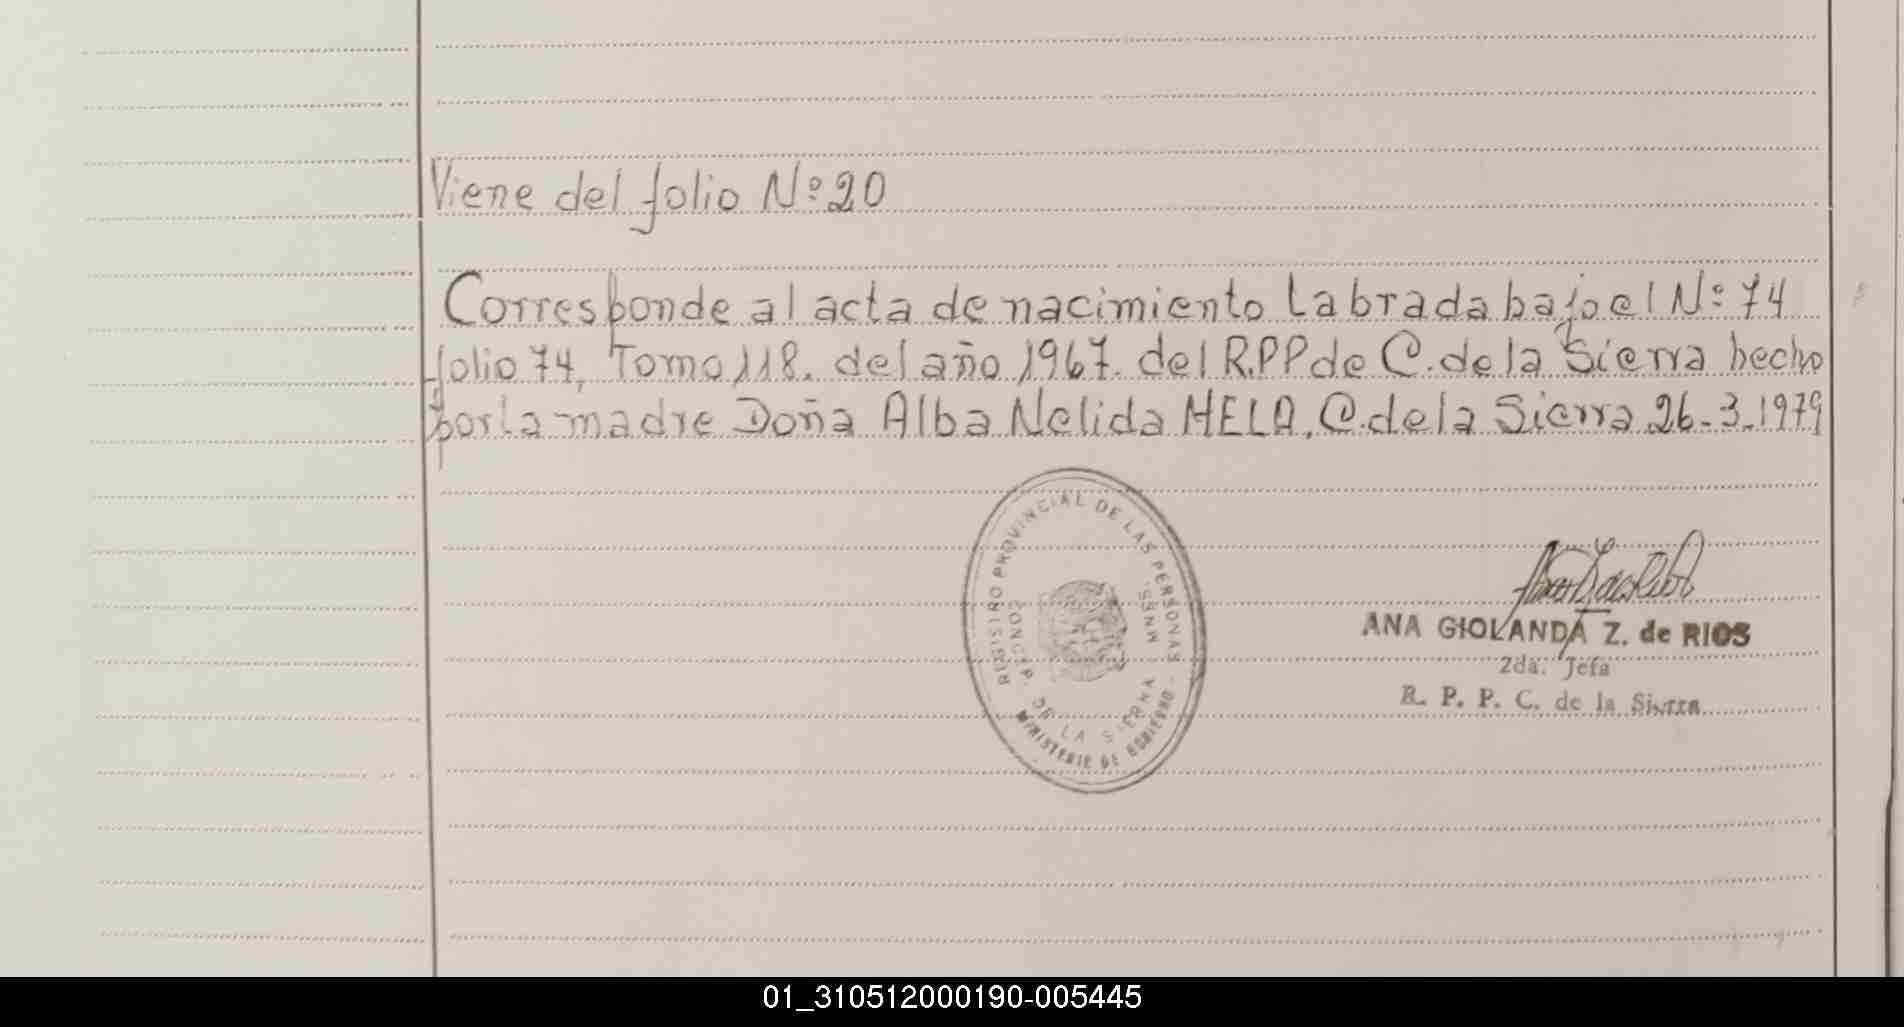 Viene del folio Nº 20
Corresponde al acta de nacimiento labrada bajo el Nº 74
folio 74, Tomo 118. del año 1967. del R.P.P de C. de la Sierra hecho
por la madre Doña Alba Nelida MELA, C. de la Sierra 26-3-1979
REGISTRO PROVINCIAL DE LAS PERSONAS
CONCEP. DE LA SIERRA MNES.
MINISTERIO DE GOBIERNO
ANA GIOLANDA Z. de RIOS
2da. Jefa
R. P. P. C. de la Sierra
01_310512000190-005445